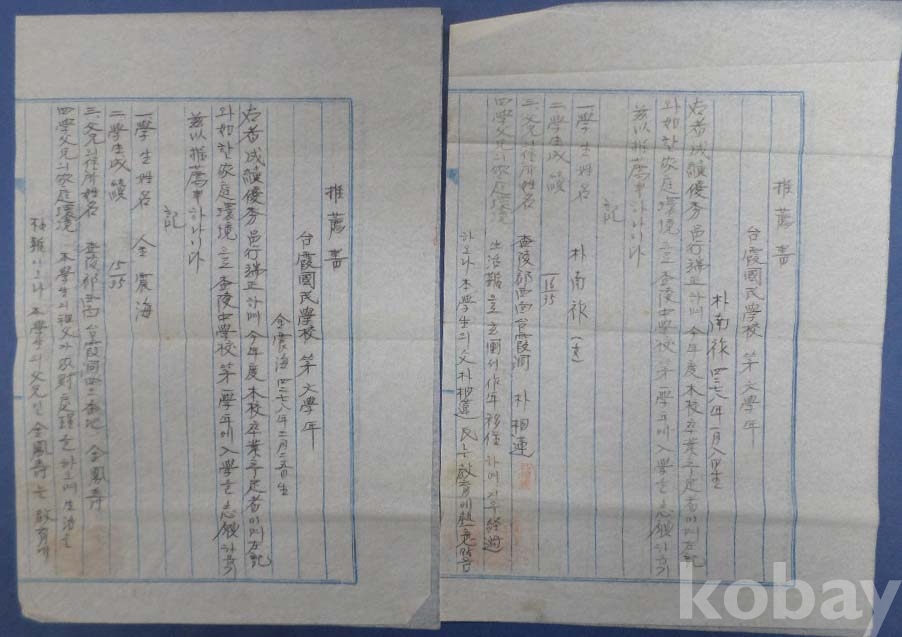 推薦書
台霞國民學校 第六學年
朴南祚 四二七八年一月八日生
右者成績優秀品行端正하며 今年度本校卒業予定者이며 左記
와如한家庭環境으로 鬱陵中學校 第一學年에 入學을 志願하옵기
玆以推薦하나이다
記
一學生姓名 朴南祚
二學生成績 16/35
三父兄의住所姓名 鬱陵郡西面台霞洞 朴相蓮
四學父兄의家庭環境
生活難으로 玄圃서 作年 移住하며 겨우 經過
하오나 本學生의 父 朴相蓮氏는 敎育에 熱意있는
推薦書
台霞國民學校 第六學年
金震海 四二七八年二月二五日生
右者成績優秀品行端正하며 今年度本校卒業予定者이며 左記
와如한家庭環境으로 鬱陵中學校 第一學年에 入學을 志願하옵기
玆以推薦하나이다
記
一學生姓名 金震海
二學生成績 15/35
三父兄의住所姓名 鬱陵郡西面台霞洞四二番地 金鳳壽
四學父兄의家庭環境 本學生의祖父가 家財 하오며 生活은
이오나 本學生의 父兄인 金鳳壽는 敎育에
kobay